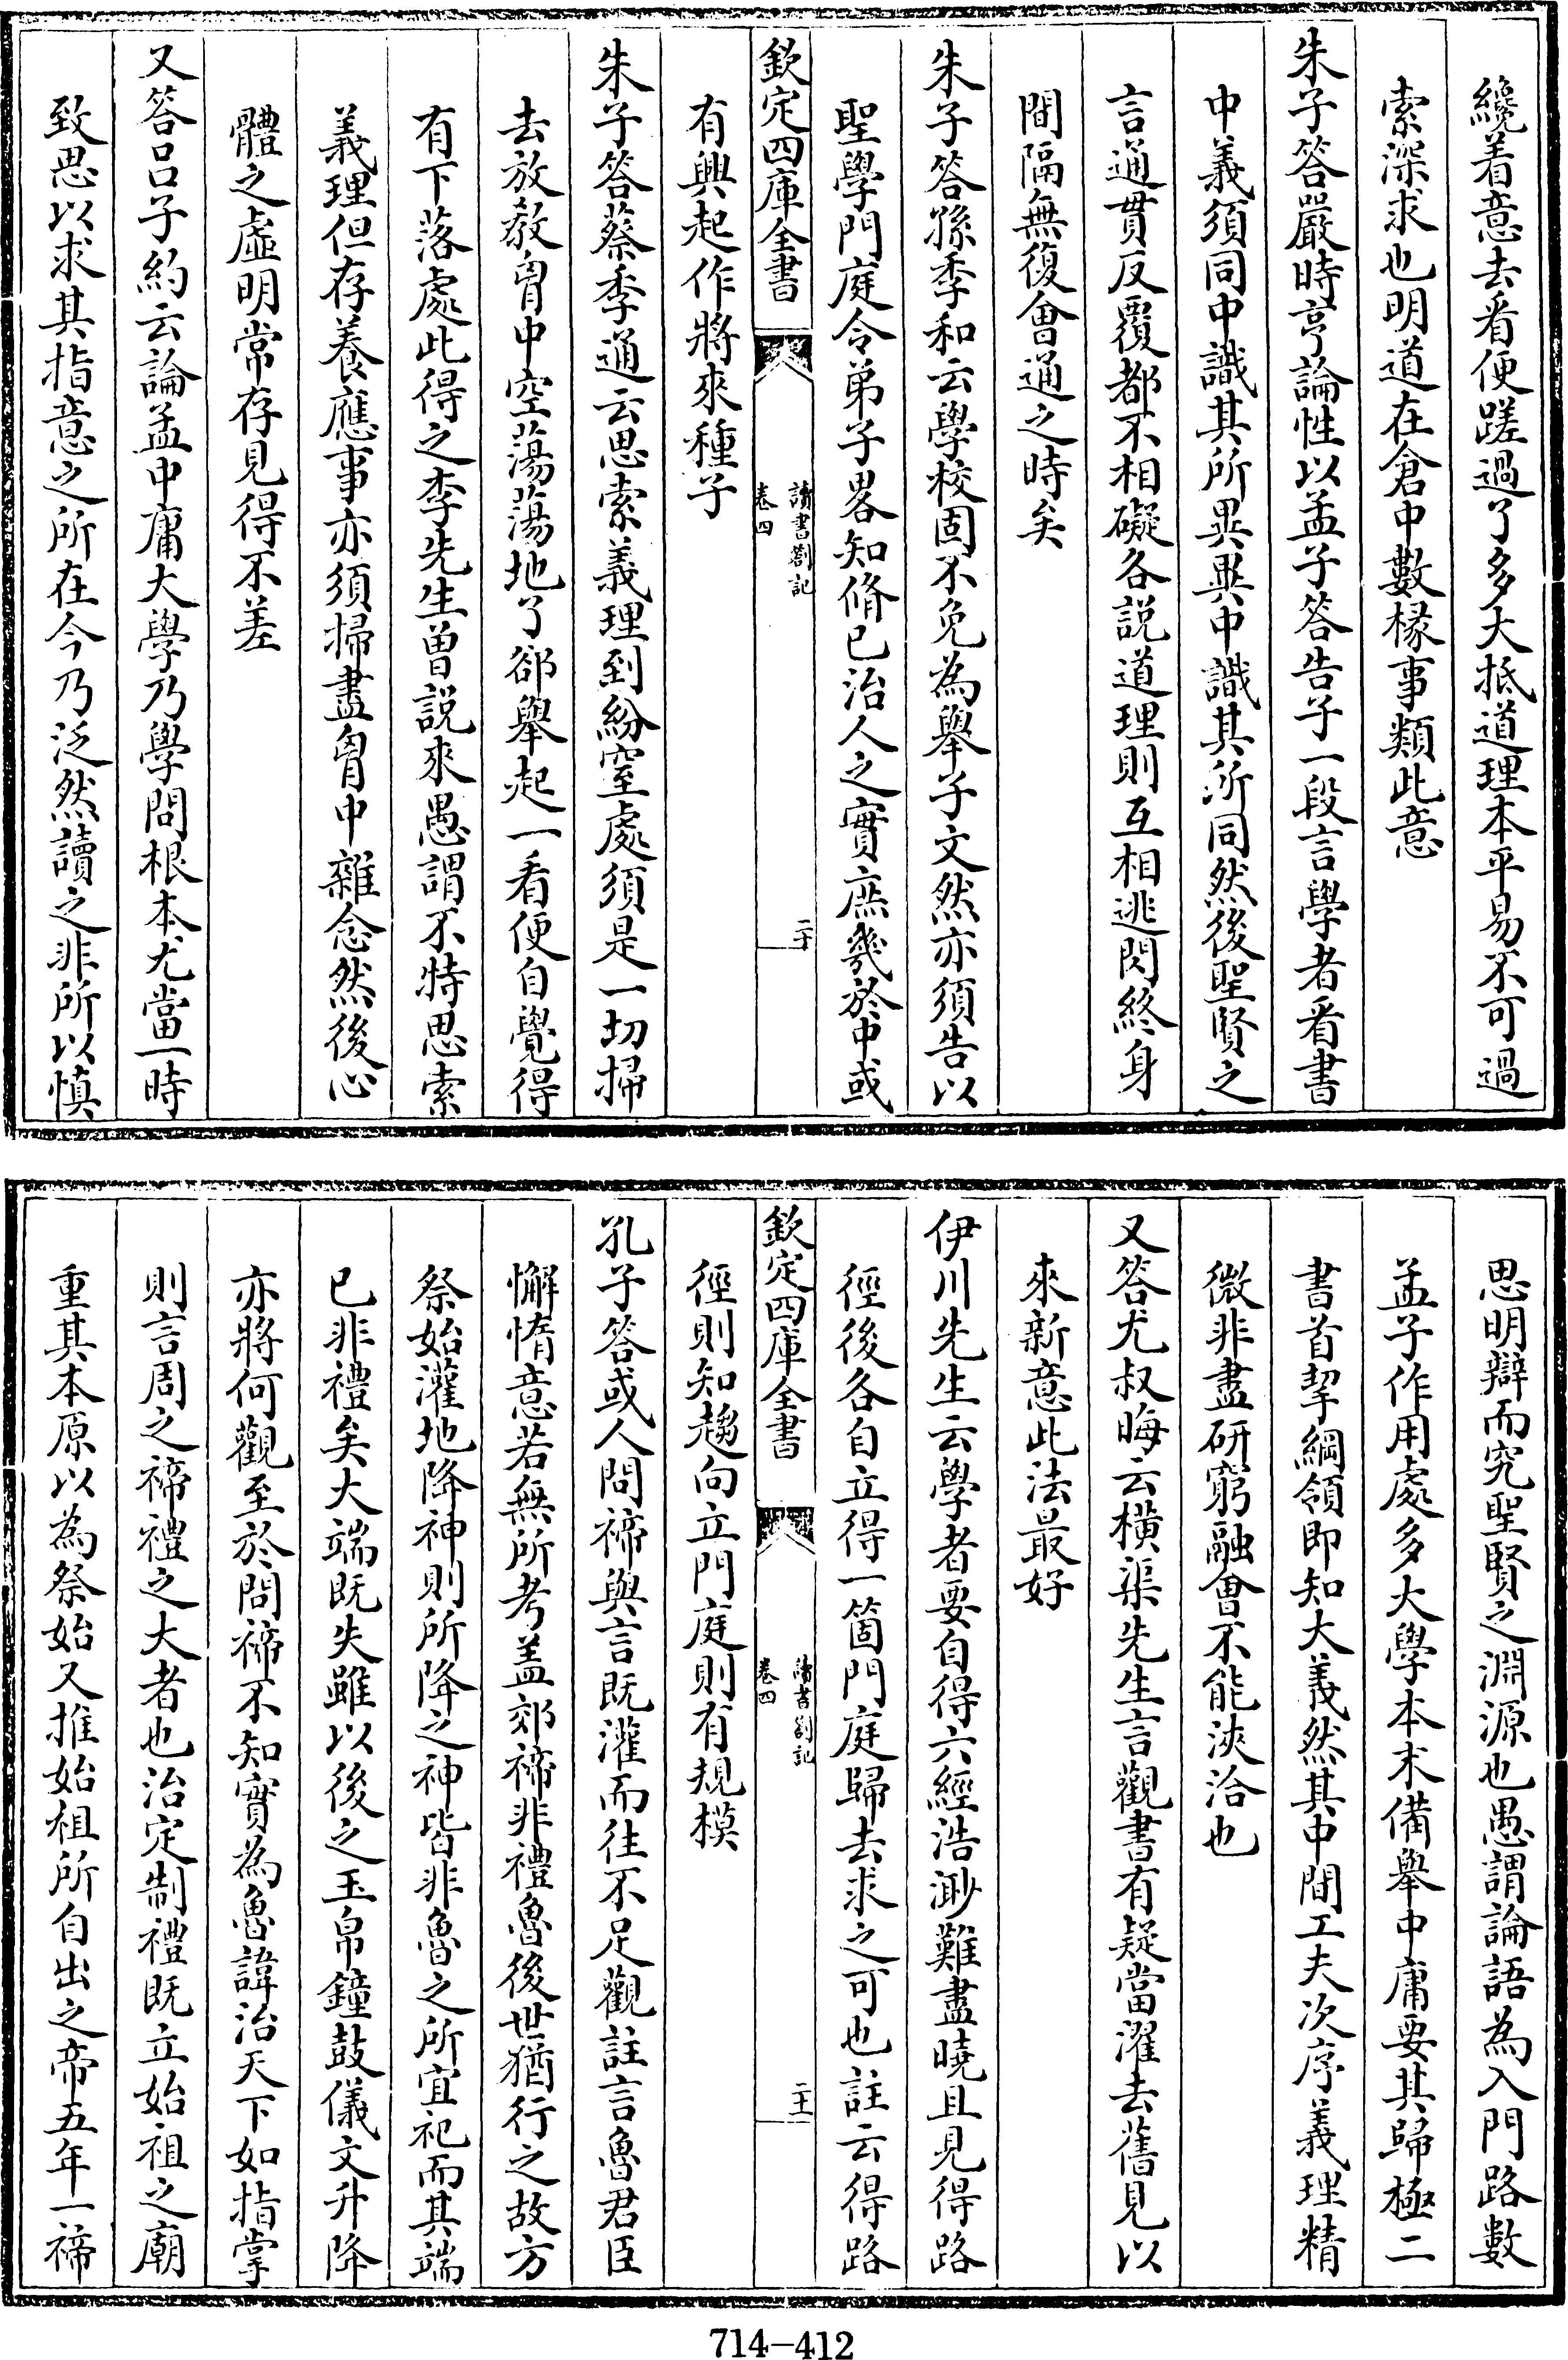 纔着意去看便蹉過了多大抵道理本平易不可過
索深求也明道在倉中數椽事類此意
朱子答嚴時亨論性以孟子答告子一段言學者看書
中義須同中識其所異異中識其所同然後聖賢之
言通貫反覆都不相礙各說道理則互相逃閃終身
間隔無復會通之時矣
朱子答孫季和云學校固不免為舉子文然亦須告以
聖學門庭令弟子畧知脩已治人之實庶幾於中或
欽定四庫全書
讀書劄記
卷四
二十
有興起作將來種子
朱子答蔡季通云思索義理到紛窒處須是一切掃
去放敎胷中空蕩蕩地了郤舉起一看便自覺得
有下落處此得之李先生曽說來愚謂不特思索
義理但存養應事亦須掃盡胷中雜念然後心
體之虛明常存見得不差
又答吕子約云論孟中庸大學乃學問根本尤當一時
致思以求其指意之所在今乃泛然讀之非所以慎
思明辯而究聖賢之淵源也愚謂論語為入門路數
孟子作用處多大學本末備舉中庸要其歸極二
書首挈綱領即知大義然其中間工夫次序義理精
微非盡研窮融會不能浹洽也
又答尤叔晦云橫渠先生言觀書有疑當濯去舊見以
來新意此法最好
伊川先生云學者要自得六經浩渺難盡曉且見得路
徑後各自立得一箇門庭歸去求之可也註云得路
欽定四庫全書
讀書劄記
卷四
二十一
徑則知趨向立門庭則有規模
孔子答或人問禘與言既灌而往不足觀註言魯君臣
懈惰意若無所考盖郊禘非禮魯後世猶行之故方
祭始灌地降神則所降之神皆非魯之所宜祀而其端
已非禮矣大端既失雖以後之玉帛鐘鼓儀文升降
亦將何觀至於問禘不知實為魯諱治天下如指掌
則言周之禘禮之大者也治定制禮既立始祖之廟
重其本原以為祭始又推始祖所自出之帝五年一禘
714-412